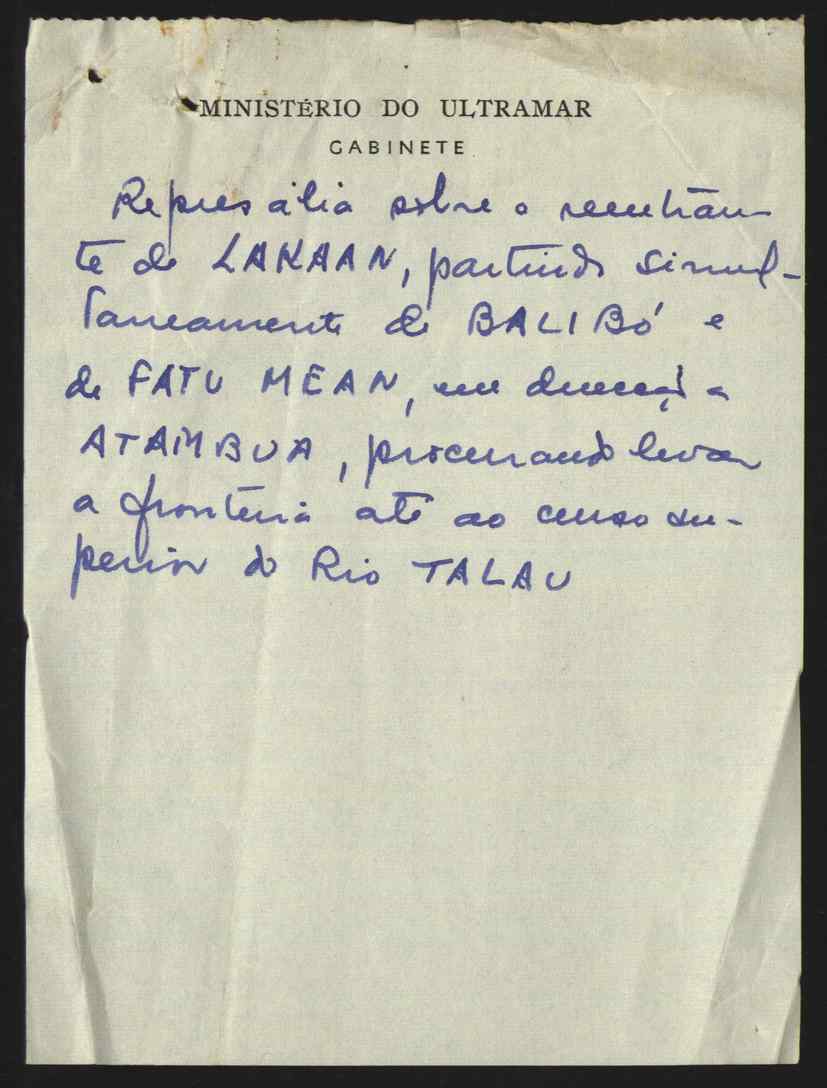 MINISTÉRIO DO ULTRAMAR
GABINETE
Represália sobre o reentran-
te de LAKAAN, partindo simul-
taneamente de BALIBÓ e
de FATU MEAN, em direcção a
ATAMBUA, procurando levar
a fronteira até ao curso su-
perior do Rio TALAU